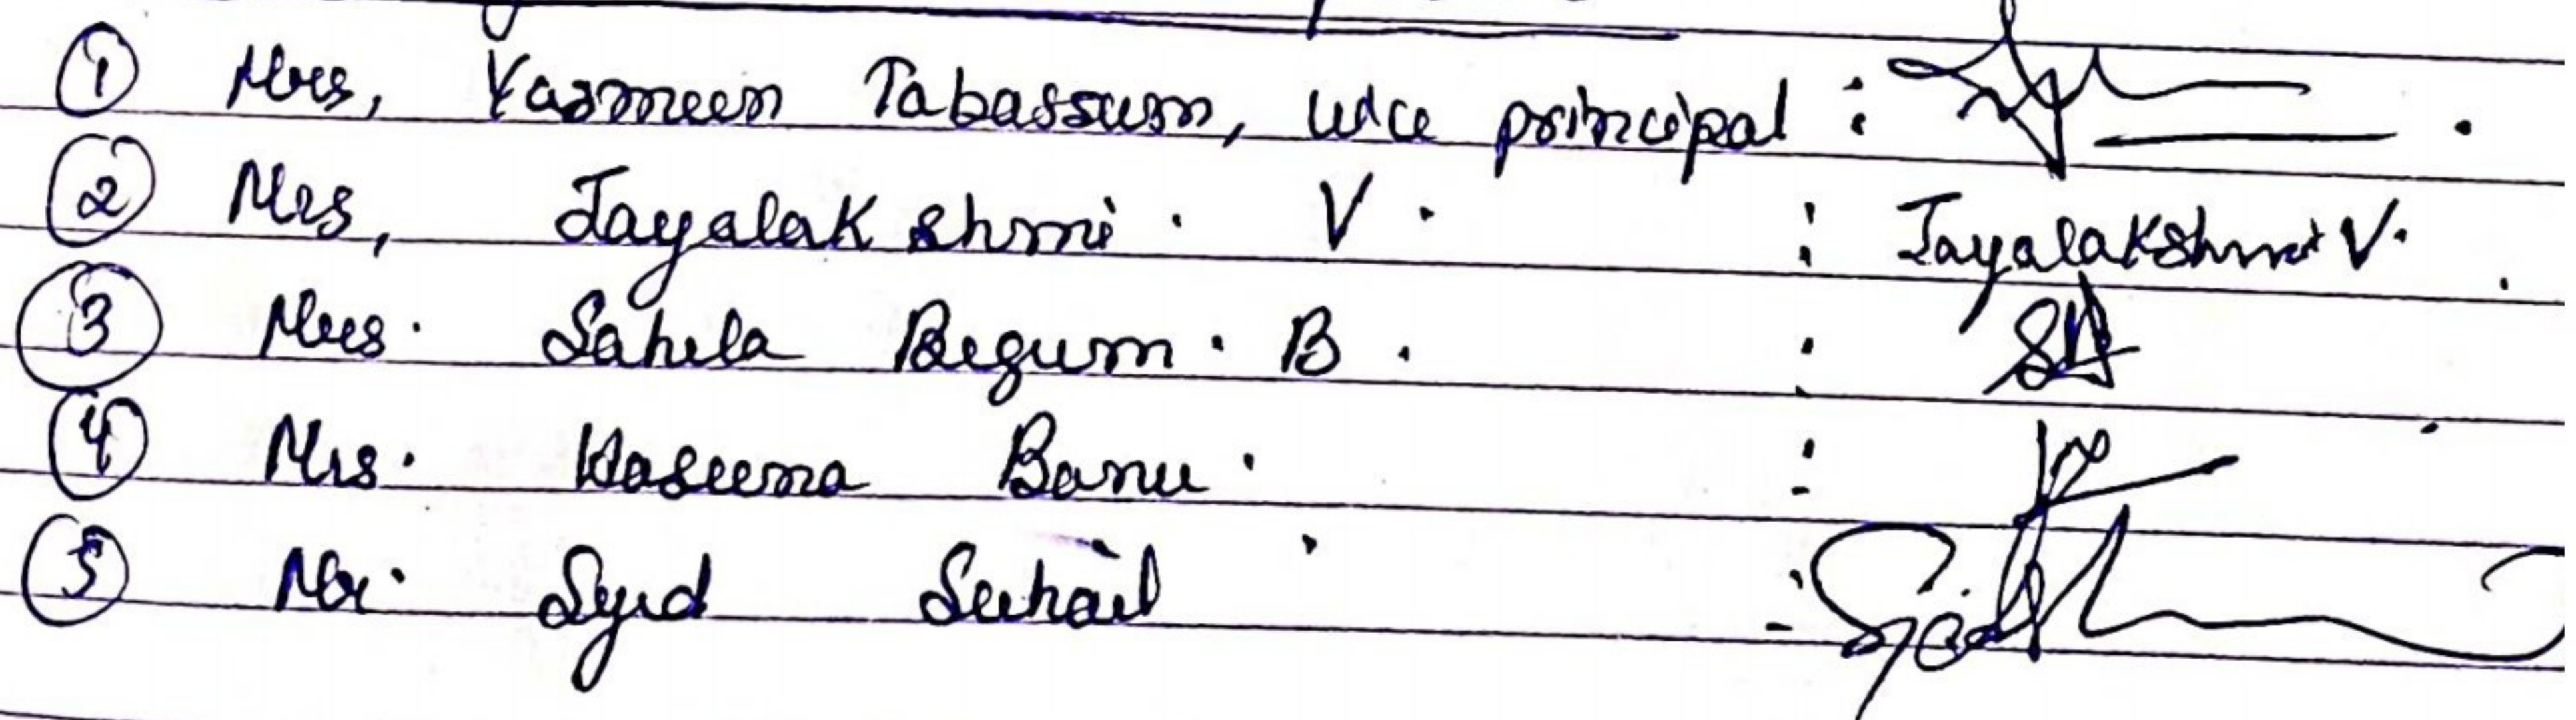 ① Mrs, Yasmeen Tabassum, vice principal :
② Mrs, Jayalakshmi . V . : Jayalakshmi V.
③ Mrs. Sahela Begum . B . :
④ Mrs. Haseena Banu . :
⑤ Mr. Syed Suhail :